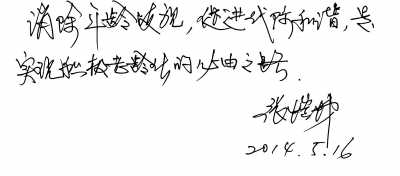 消除年龄歧视，促进代际和谐，是
实现积极老龄化的必由之路．
张恺悌
2014.5.16